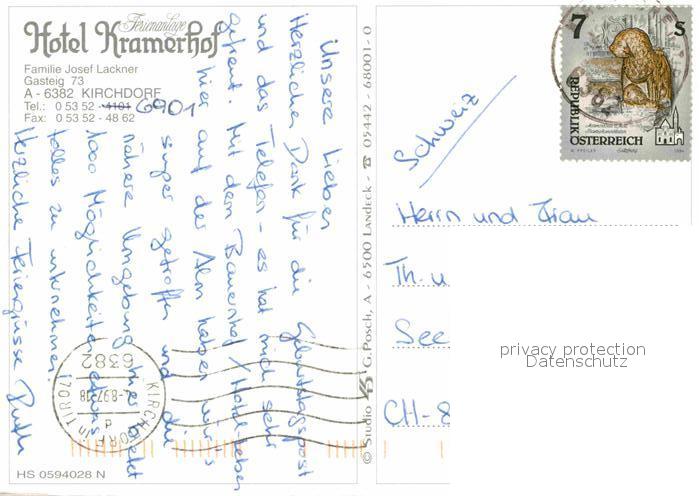 Ferienanlage
Hotel Kramerhof
Familie Josef Lackner
Gasteig 73
A - 6382 KIRCHDORF
Tel.: 0 53 52 - 4101 6901
Fax: 0 53 52 - 48 62
Unsere Lieben
Herzlichen Dank für die Geburtstagspost
und das Telefon - es hat mich sehr
gefreut. Mit dem Bauernhof / Hotel-leben
hier auf der Alm haben wir's
super getroffen und die
nähere Umgebung hier bietet
1000 Möglichkeiten etwas
tolles zu unternehmen!
Herzliche Feriengrüsse Ruth
KIRCHDORF in TIROL
6382
HS 0594028 N
© Studio G. Posch, A - 6500 Landeck - ☎ 05442 - 68001 - 0
7 S
REPUBLIK
ÖSTERREICH
Schweiz
Herrn und Frau
Th. u
See
CH-8
privacy protection
Datenschutz